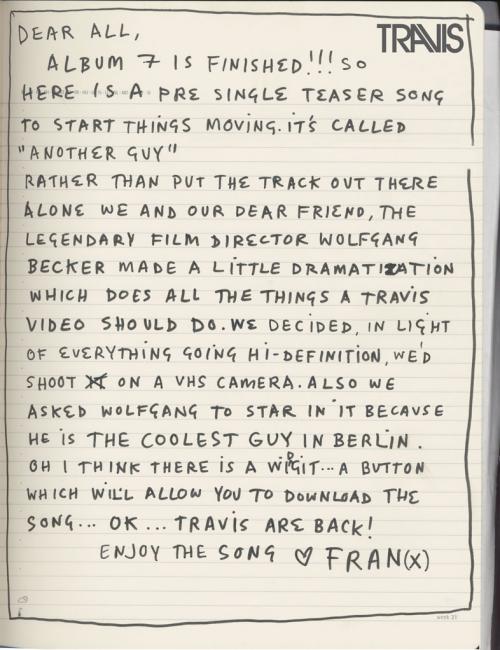 TRAVIS
DEAR ALL,
ALBUM 7 IS FINISHED!!! SO
HERE IS A PRE SINGLE TEASER SONG
TO START THINGS MOVING. IT'S CALLED
"ANOTHER GUY"
RATHER THAN PUT THE TRACK OUT THERE
ALONE WE AND OUR DEAR FRIEND, THE
LEGENDARY FILM DIRECTOR WOLFGANG
BECKER MADE A LITTLE DRAMATIZATION
WHICH DOES ALL THE THINGS A TRAVIS
VIDEO SHOULD DO. WE DECIDED, IN LIGHT
OF EVERYTHING GOING HI-DEFINITION, WE'D
SHOOT ON A VHS CAMERA. ALSO WE
ASKED WOLFGANG TO STAR IN IT BECAUSE
HE IS THE COOLEST GUY IN BERLIN.
OH I THINK THERE IS A WIDGIT... A BUTTON
WHICH WILL ALLOW YOU TO DOWNLOAD THE
SONG... OK... TRAVIS ARE BACK!
ENJOY THE SONG ♡ FRAN(X)
week 27